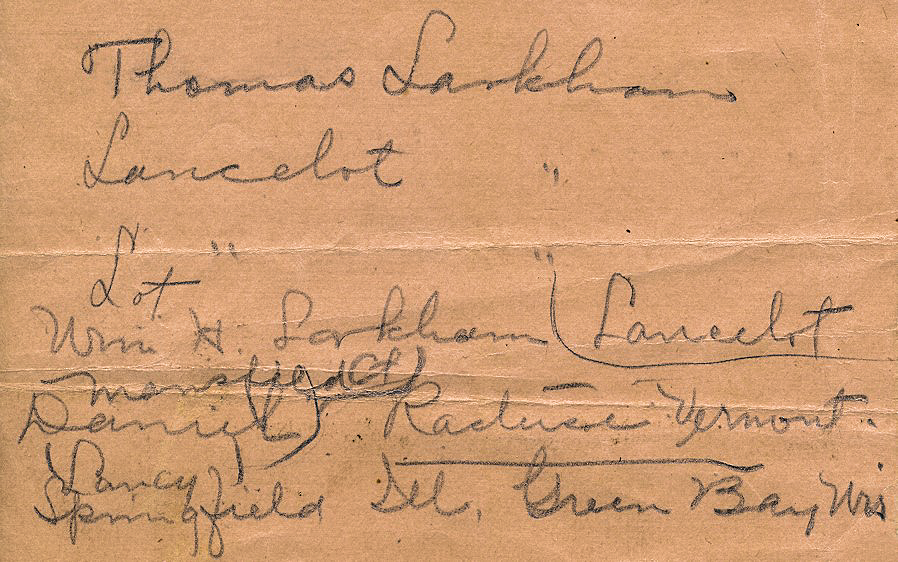 Thomas Larkham
Lancelot "
Lot " "
Wm H. Larkham Lancelot
Mansfield Ct
Daniel Vermont.
Lancy
Springfield Ill. Green Bay Wis